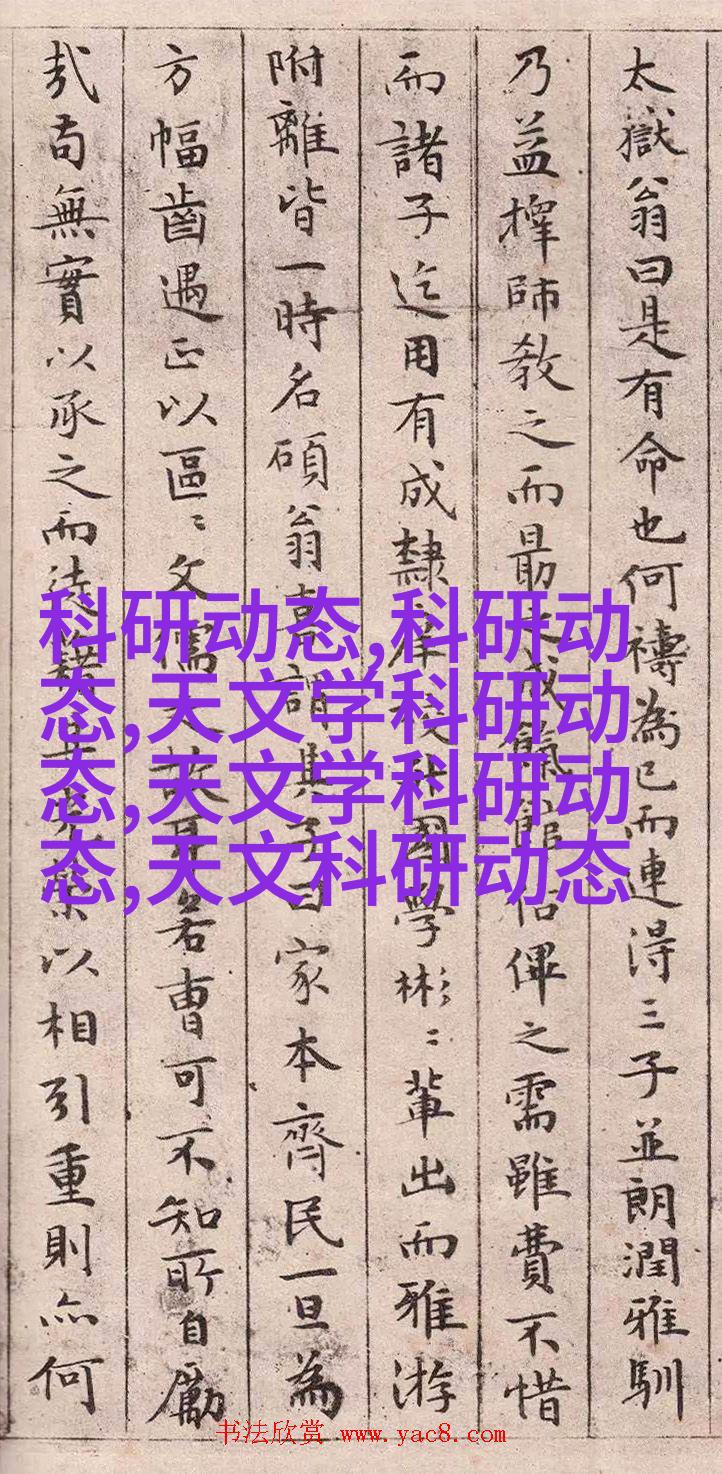 太嶽翁曰是有命也何禱為已而連得三子並朗潤雅馴
乃益擇師教之而最之成餼館估俾之需雖費不惜
而諸子迄用有成隸庠校升國學彬〻輩出而雅游
附離皆一時名碩翁喜謂其子曰家本齊民一旦為
方幅齒遇正以區〻文儒之故耳若曹可不知所自勵
哉苟無實以承之而徒藉以相引重則亦何
科研动态,科研动
态,天文学科研动
态,天文学科研动
态,天文科研动态
书法欣赏 www.yac8.com